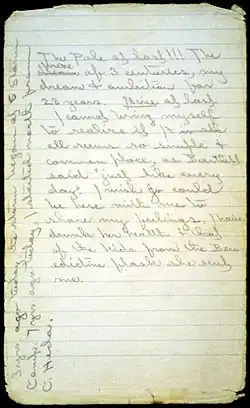 The Pole at last!!! The
prize of 3 centuries, my
dream & ambition for
23 years. Mine at last.
I cannot bring myself
to realize it. It
all seems so simple &
common place, as Bartlett
said "just like every
day." I wish Jo could
be here with me to
share my feelings. I have
drunk her health & that
of the kids from the Ben-
edictine flask she sent
me.
3 yrs ago today
7 yrs ago today I started north from
C. Hecla.